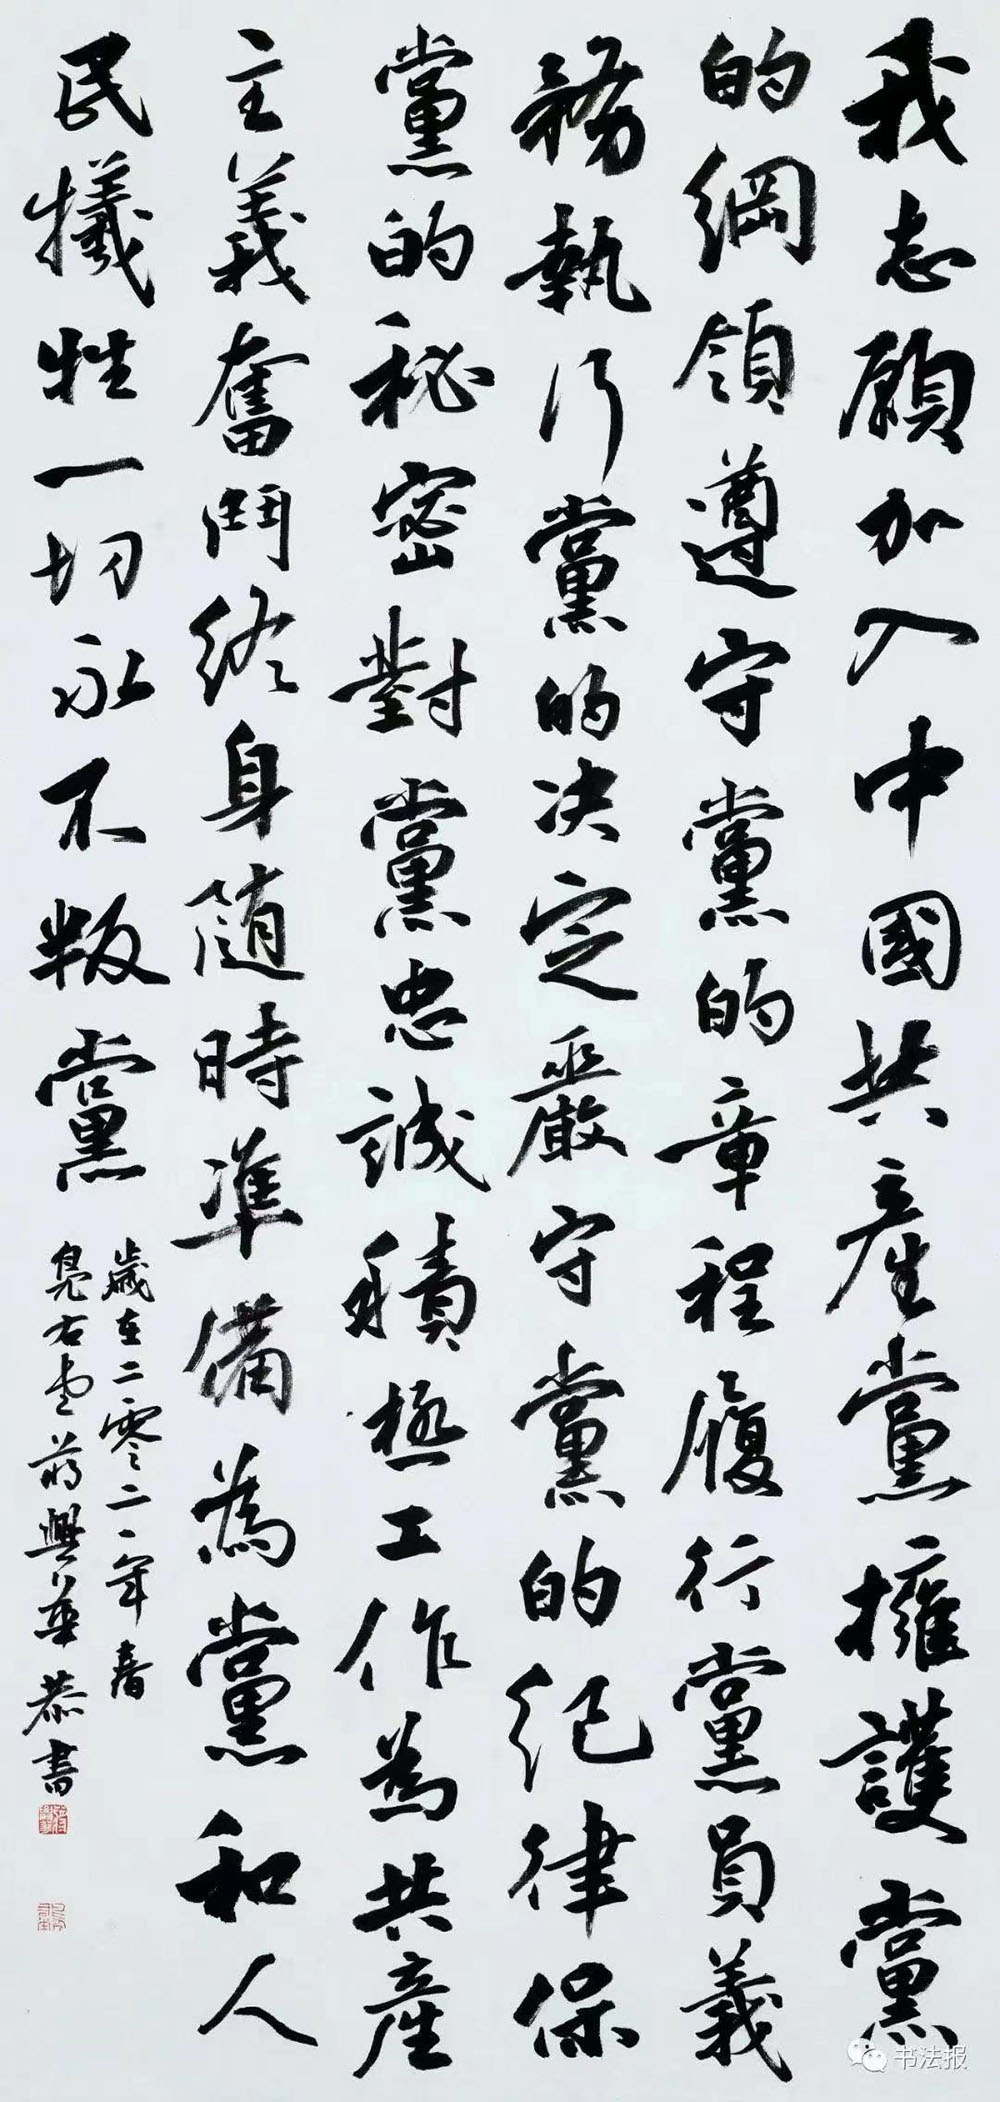 我志願加入中國共産黨擁護黨
的綱領遵守黨的章程履行黨員義
務執行黨的决定嚴守黨的紀律保
黨的秘密對黨忠誠積極工作為共産
主義奮鬥終身隨時準備為黨和人
民犧牲一切永不叛黨
歲在二零二一年春
蔣興華恭書
书法报